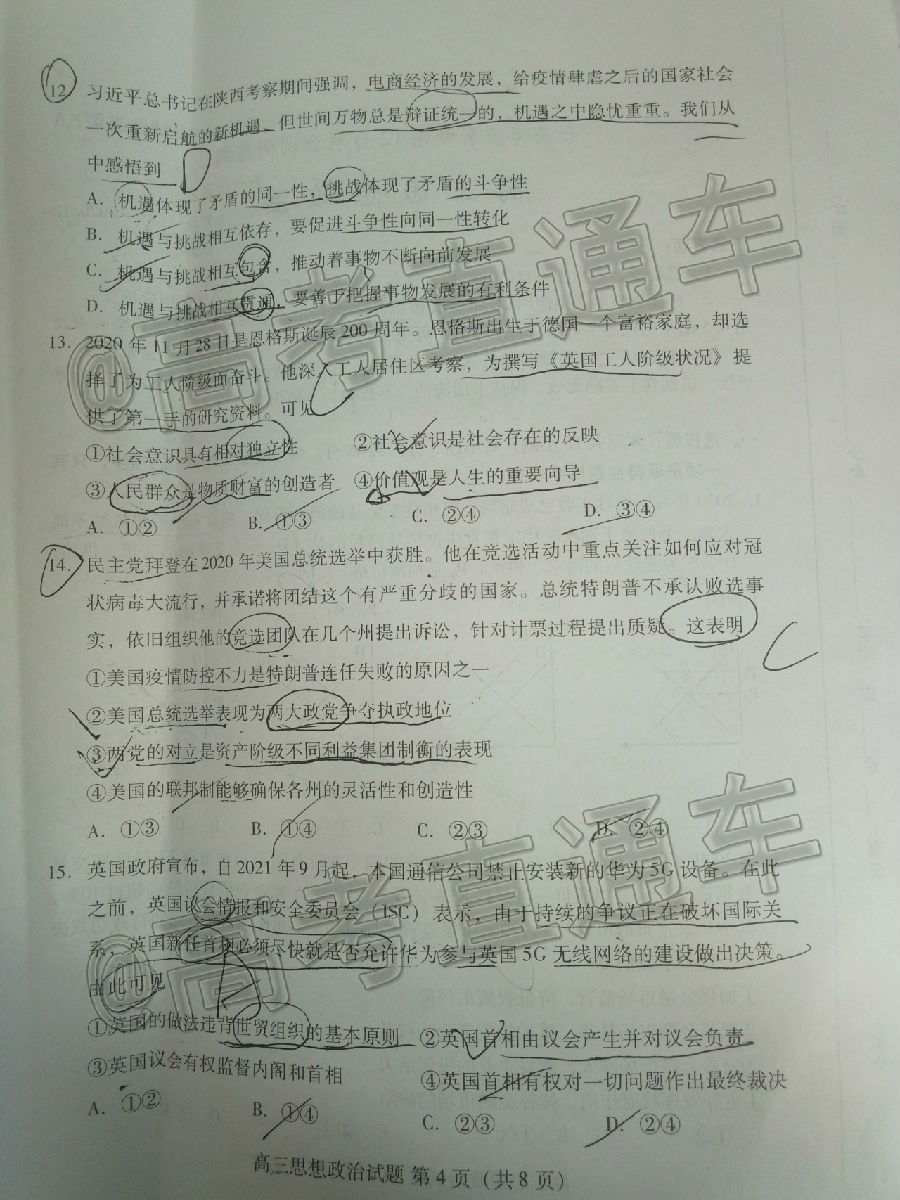 12. 习近平总书记在陕西考察期间强调，电商经济的发展，给疫情肆虐之后的国家社会
一次重新启航的新机遇，但世间万物总是辩证统一的，机遇之中隐忧重重。我们从
中感悟到
A. 机遇体现了矛盾的同一性，挑战体现了矛盾的斗争性
B. 机遇与挑战相互依存，要促进斗争性向同一性转化
C. 机遇与挑战相互包含，推动着事物不断向前发展
D. 机遇与挑战相互贯通，要善于把握事物发展的有利条件
13. 2020年11月28日是恩格斯诞辰200周年。恩格斯出生于德国一个富裕家庭，却选
择了为工人阶级而奋斗。他深入工人居住区考察，为撰写《英国工人阶级状况》提
供了第一手的研究资料。可见
①社会意识具有相对独立性 ②社会意识是社会存在的反映
③人民群众是物质财富的创造者 ④价值观是人生的重要向导
A. ①② B. ①③ C. ②④ D. ③④
14. 民主党拜登在2020年美国总统选举中获胜。他在竞选活动中重点关注如何应对冠
状病毒大流行，并承诺将团结这个有严重分歧的国家。总统特朗普不承认败选事
实，依旧组织他的竞选团队在几个州提出诉讼，针对计票过程提出质疑。这表明
①美国疫情防控不力是特朗普连任失败的原因之一
②美国总统选举表现为两大政党争夺执政地位
③两党的对立是资产阶级不同利益集团制衡的表现
④美国的联邦制能够确保各州的灵活性和创造性
A. ①③ B. ①④ C. ②③ D. ②④
15. 英国政府宣布，自2021年9月起，本国通信公司禁止安装新的华为5G设备。在此
之前，英国议会情报和安全委员会（ISC）表示，由于持续的争议正在破坏国际关
系，英国新任首相必须尽快就是否允许华为参与英国5G无线网络的建设做出决策。
由此可见
①英国的做法违背世贸组织的基本原则 ②英国首相由议会产生并对议会负责
③英国议会有权监督内阁和首相 ④英国首相有权对一切问题作出最终裁决
A. ①② B. ①④ C. ②③ D. ②④
高三思想政治试题 第4页（共8页）
@高考直通车
@高考直通车